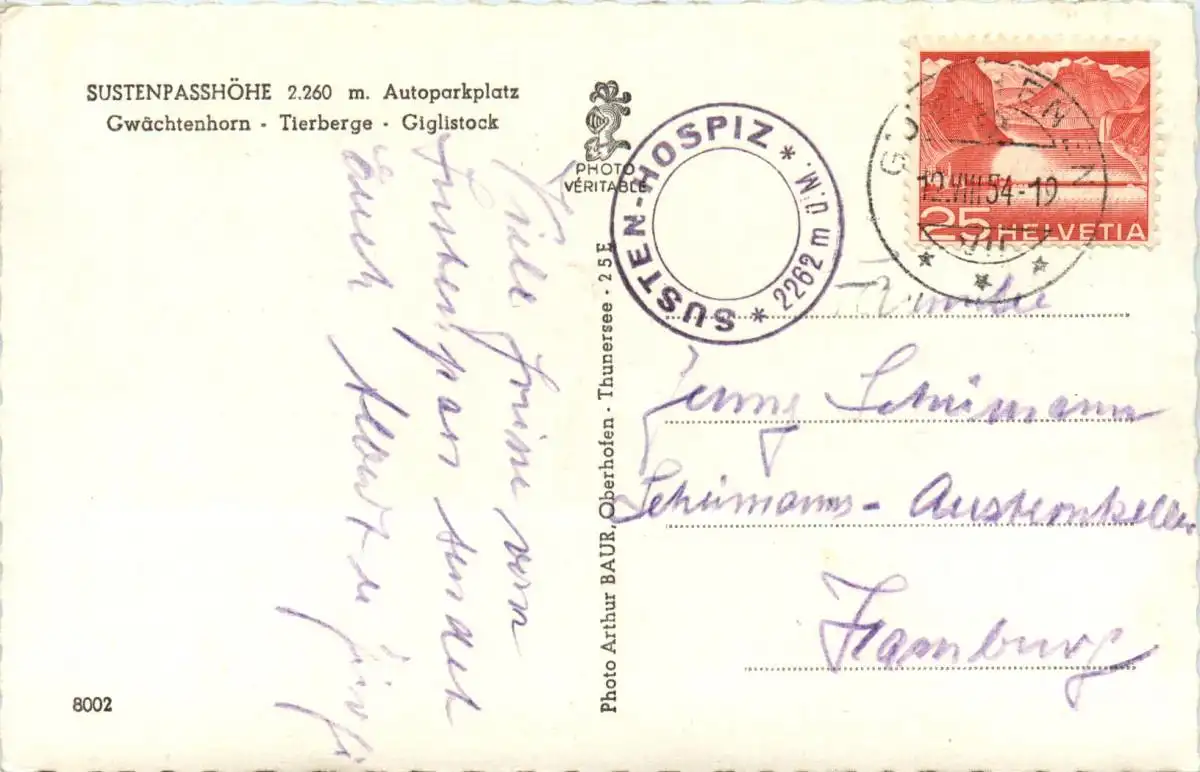 SUSTENPASSHÖHE 2.260 m. Autoparkplatz
Gwächtenhorn - Tierberge - Giglistock
PHOTO
VÉRITABLE
SUSTEN-HOSPIZ * 2262 m Ü.M. *
12.VIII.54-19
25 HELVETIA
Viele Grüsse vom
Sustenpass sendet
Euch
Photo Arthur BAUR, Oberhofen - Thunersee - 25E
Familie
Jenny Schümann
Schümanns - Austernkeller
Hamburg
8002